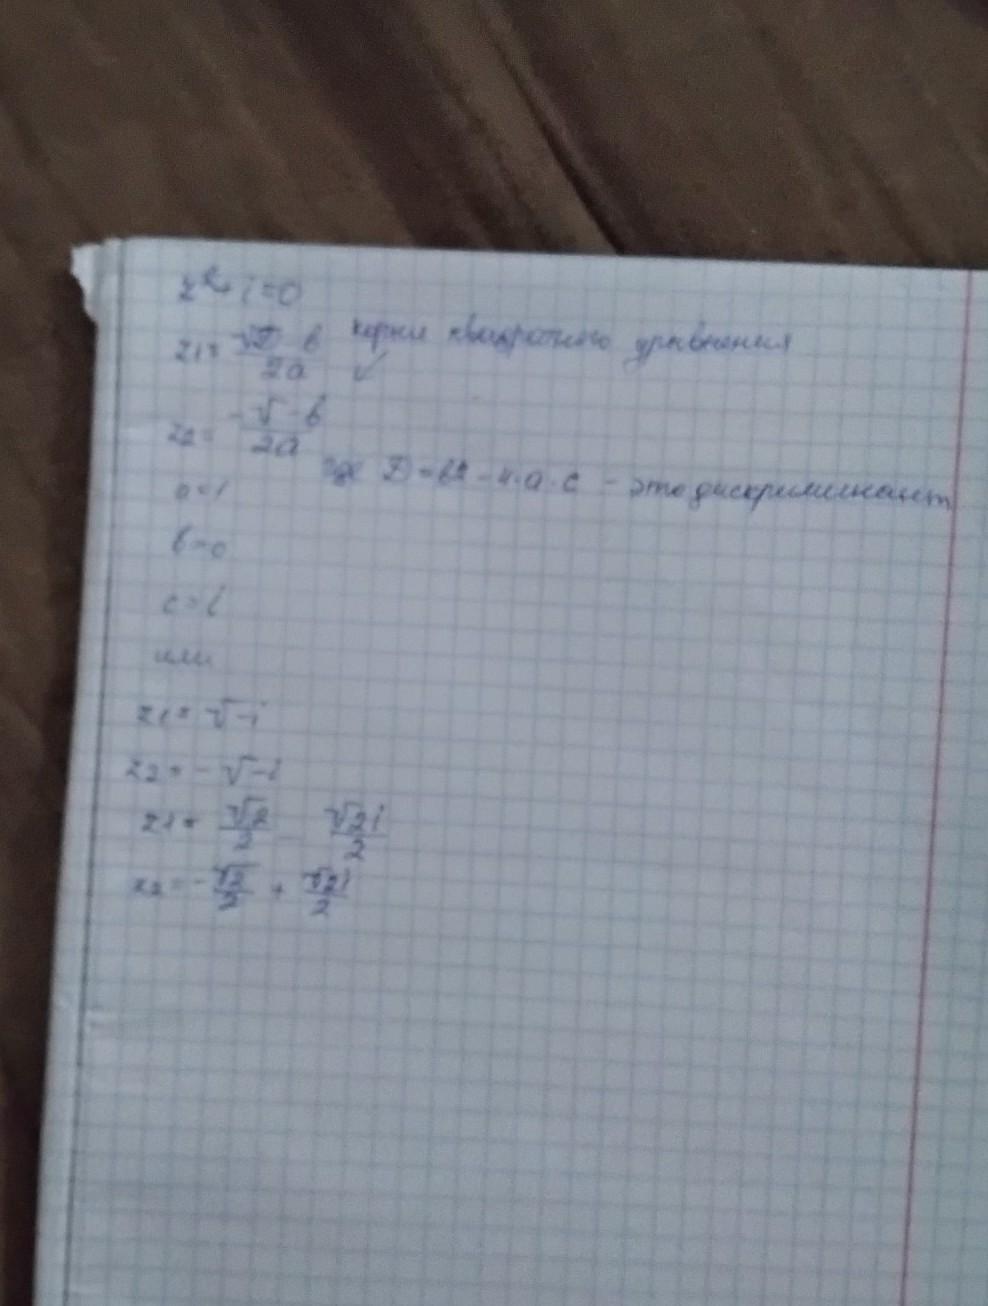 z² + i = 0
z₁ = (√D - b)/2a корни квадратного уравнения
z₂ = (-√ - b)/2a
где D = b² - 4·a·c - это дискриминант
a = 1
b = 0
c = i
или
z₁ = √-i
z₂ = -√-i
z₁ = √2/2 √2i/2
z₂ = -√2/2 + √2i/2